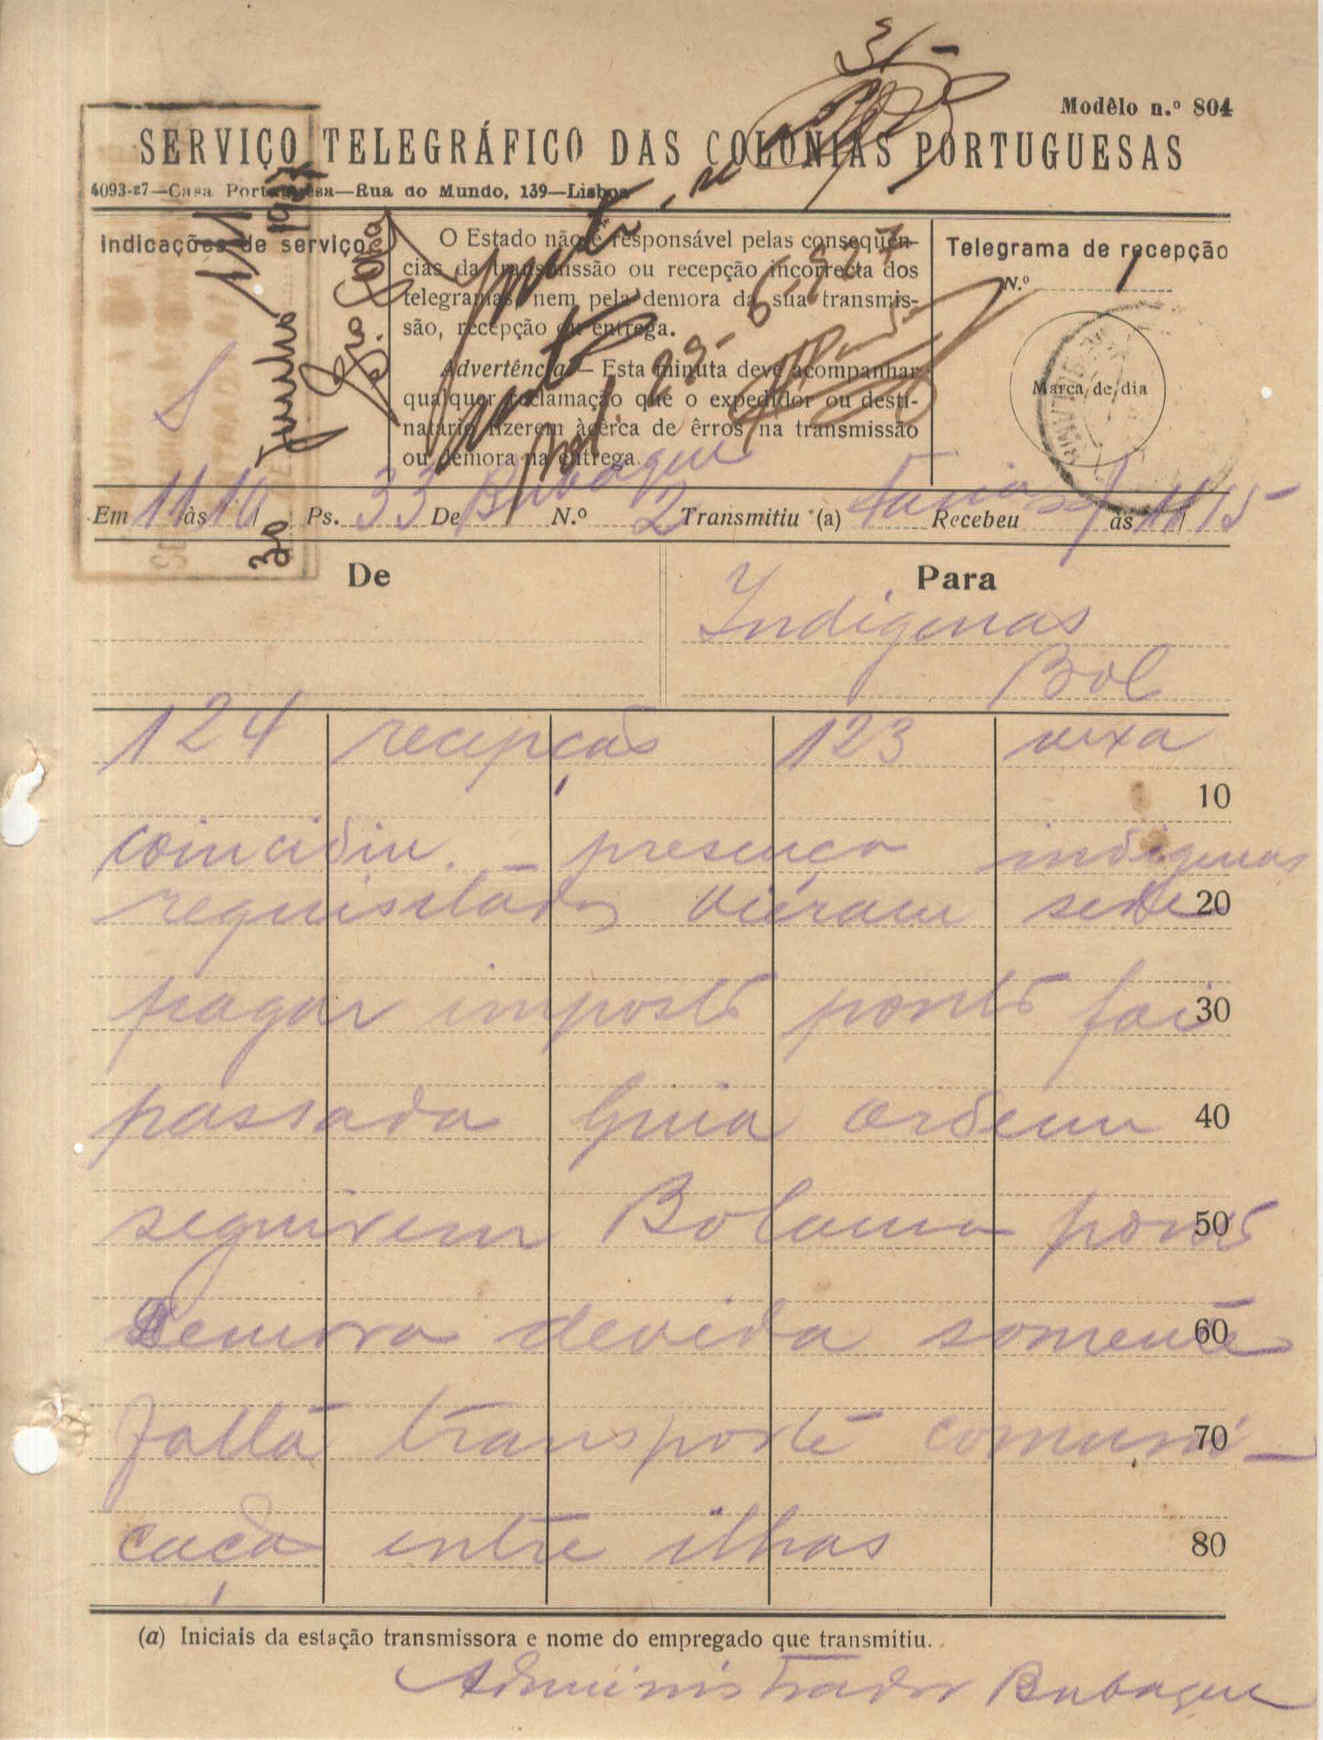 31-
Modêlo n.º 804
SERVIÇO TELEGRÁFICO DAS COLÓNIAS PORTUGUESAS
4093-27—Casa Portuguesa—Rua do Mundo, 139—Lisboa
Indicações de serviço
O Estado não é responsável pelas conseqüên-
cias da transmissão ou recepção incorrecta dos
telegramas, nem pela demora da sua transmis-
são, recepção ou entrega.
Advertência — Esta minuta deve acompanhar
qualquer reclamação que o expedidor ou desti-
natário fizerem àcêrca de êrros na transmissão
ou demora na entrega.
Telegrama de recepção
N.º 1
Marca de dia
30 Junho
Em 11 às 10 Ps. 33 De Bubaque N.º 2 Transmitiu (a) Farias Recebeu às 11/15
De
Para
Indigenas
Bol
124 recepção 123 vexa
10
coincidiu - presença indigenas
requisitados viéram séde 20
pagar imposto ponto foi 30
passada Guia ordem 40
seguirem Bolama ponto 50
Demora devida somente 60
falta transporte comuni- 70
cação entre ilhas 80
(a) Iniciais da estação transmissora e nome do empregado que transmitiu.
Administrador Bubaque